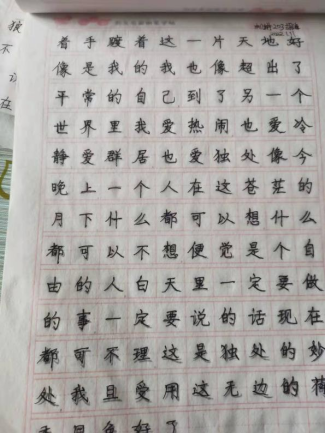 着手踱着这一片天地好
像是我的我也像超出了
平常的自己到了另一个
世界里我爱热闹也爱冷
静爱群居也爱独处像今
晚上一个人在这苍茫的
月下什么都可以想什么
都可以不想便觉是个自
由的人白天里一定要做
的事一定要说的话现在
都可不理这是独处的妙
处我且爱用这无边的荷
香月色好了